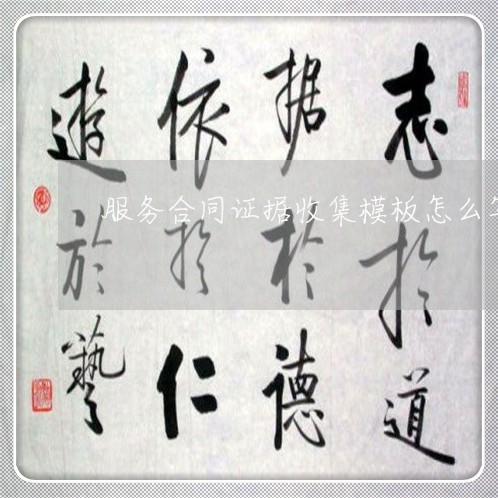 志於道
据於德
依於仁
遊於藝
服务合同证据收集模板怎么